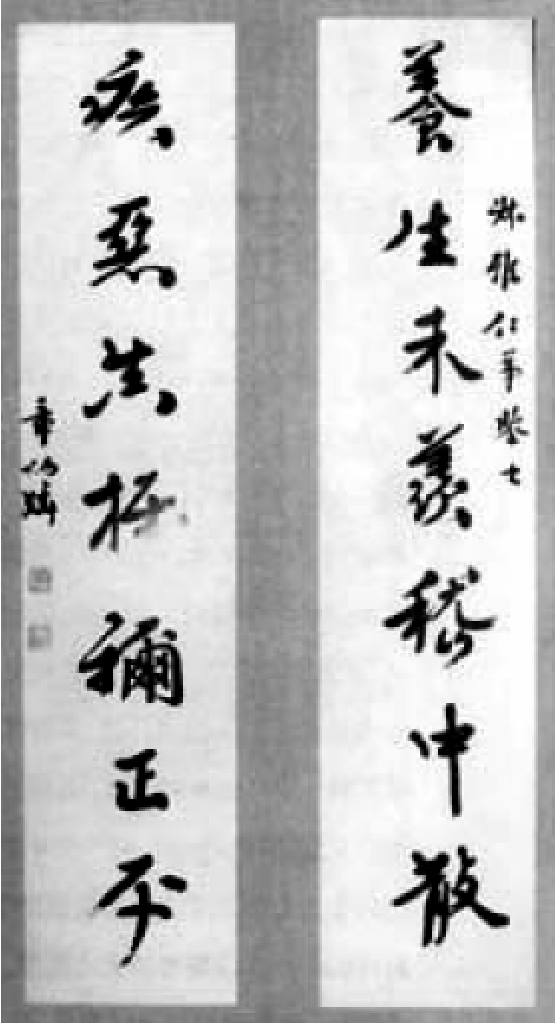 叔雅仁弟鑒之
養生未羨嵇中散
疾惡真推禰正平
章炳麟